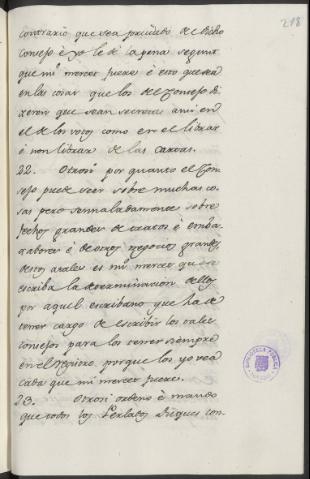 218
contrario que sea privado de dicho
consejo è yo le dè la pena segunt
que mi merced fuere: è esto que sea
en las cosas que los de Consejo di-
xeren que sean secretas ansi en
el de los votos como en el librar
è non librar de las cartas.
22. Otrosi por quanto el Con-
sejo puede seer sobre muchas co-
sas pero sennaladamente sobre
fechos grandes de tratos è emba-
xadores è de otros negocios grandes
destos atales es mi merced que se
escriba la determinacion dello
por aquel escribano que ha de
tener cargo de escribir los tales
consejos para los tener siempre
en el registro porque los yo vea
cada que mi merced fuere.
23. Otrosi ordeno è mando
que todos los Perlados Duques con-
BIBLIOTECA